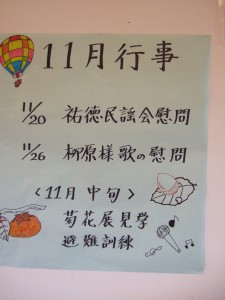 11月行事
11/20 祐徳民謡会慰問
11/26 柳原様歌の慰問
<11月中旬>
菊花展見学
避難訓練